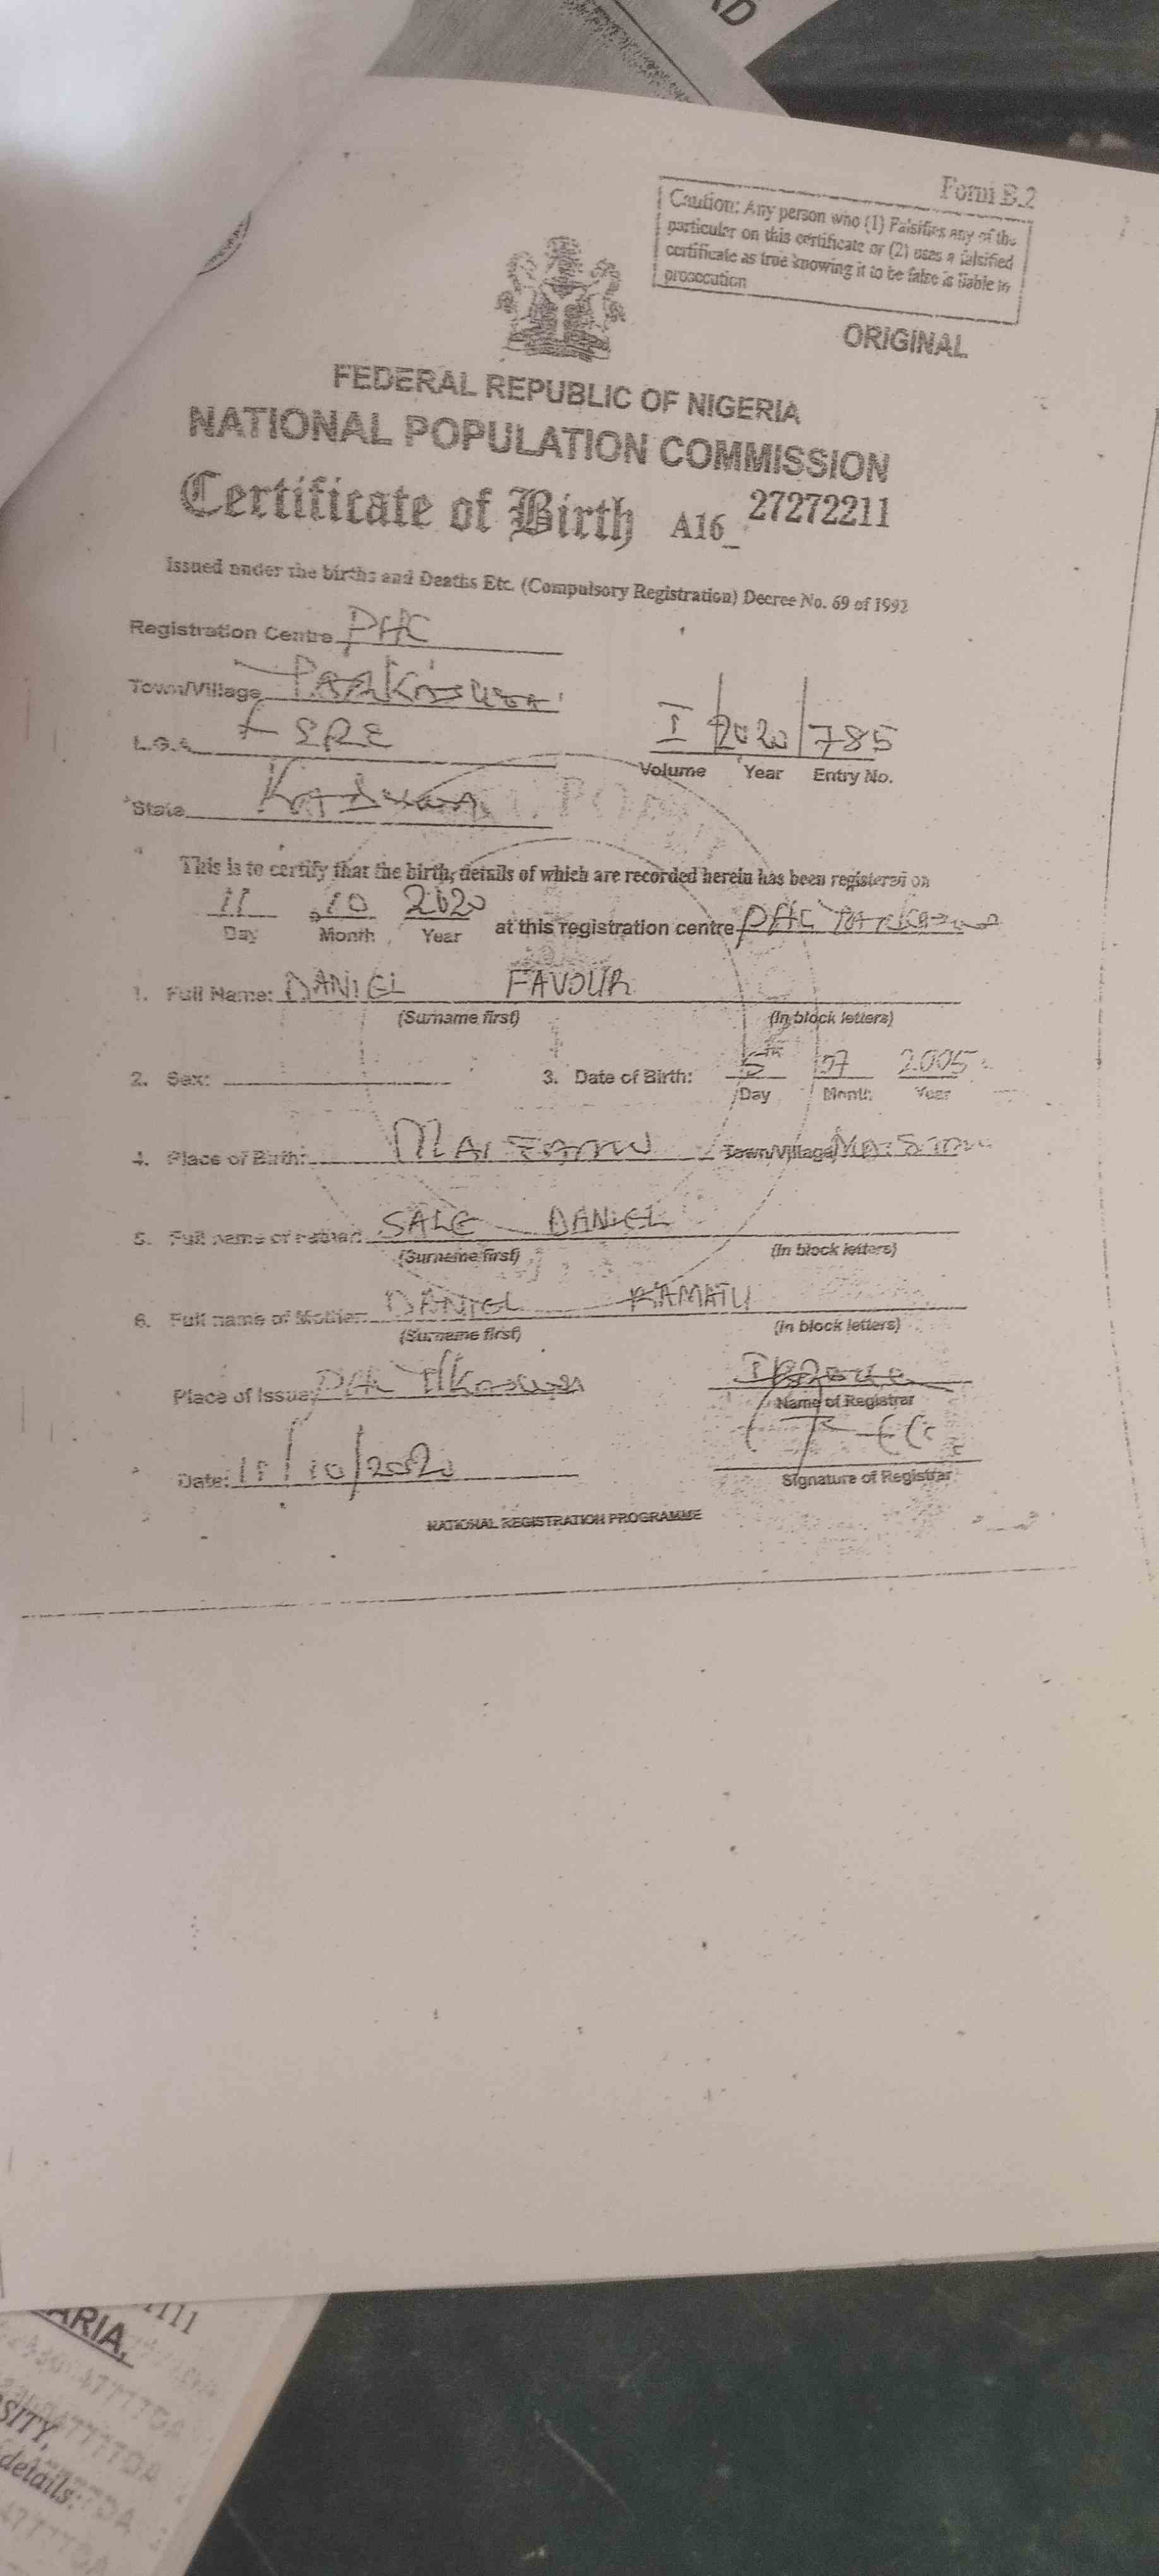 Form B.2
Caution: Any person who (1) Falsifies any of the
particular on this certificate or (2) uses a falsified
certificate as true knowing it to be false is liable to
prosecution
ORIGINAL
FEDERAL REPUBLIC OF NIGERIA
NATIONAL POPULATION COMMISSION
Certificate of Birth A16_ 27272211
Issued under the births and Deaths Etc. (Compulsory Registration) Decree No. 69 of 1992
Registration Centre PHC
Town/Village
L.G.A. LERE
I 2020 785
Volume Year Entry No.
State Kaduna
This is to certify that the birth, details of which are recorded herein has been registered on
11 10 2020 at this registration centre PHC
Day Month Year
1. Full Name: DANIEL FAVOUR
(Surname first) (In block letters)
2. Sex: 3. Date of Birth: 5th 07 2005
Day Month Year
4. Place of Birth: Town/Village
5. Full name of Father: SALE DANIEL
(Surname first) (In block letters)
6. Full name of Mother: DANIEL RAMATU
(Surname first) (In block letters)
Place of Issue: PHC
Name of Registrar
Date: 11/10/2020
Signature of Registrar
NATIONAL REGISTRATION PROGRAMME
ARIA,
SITY,
details: